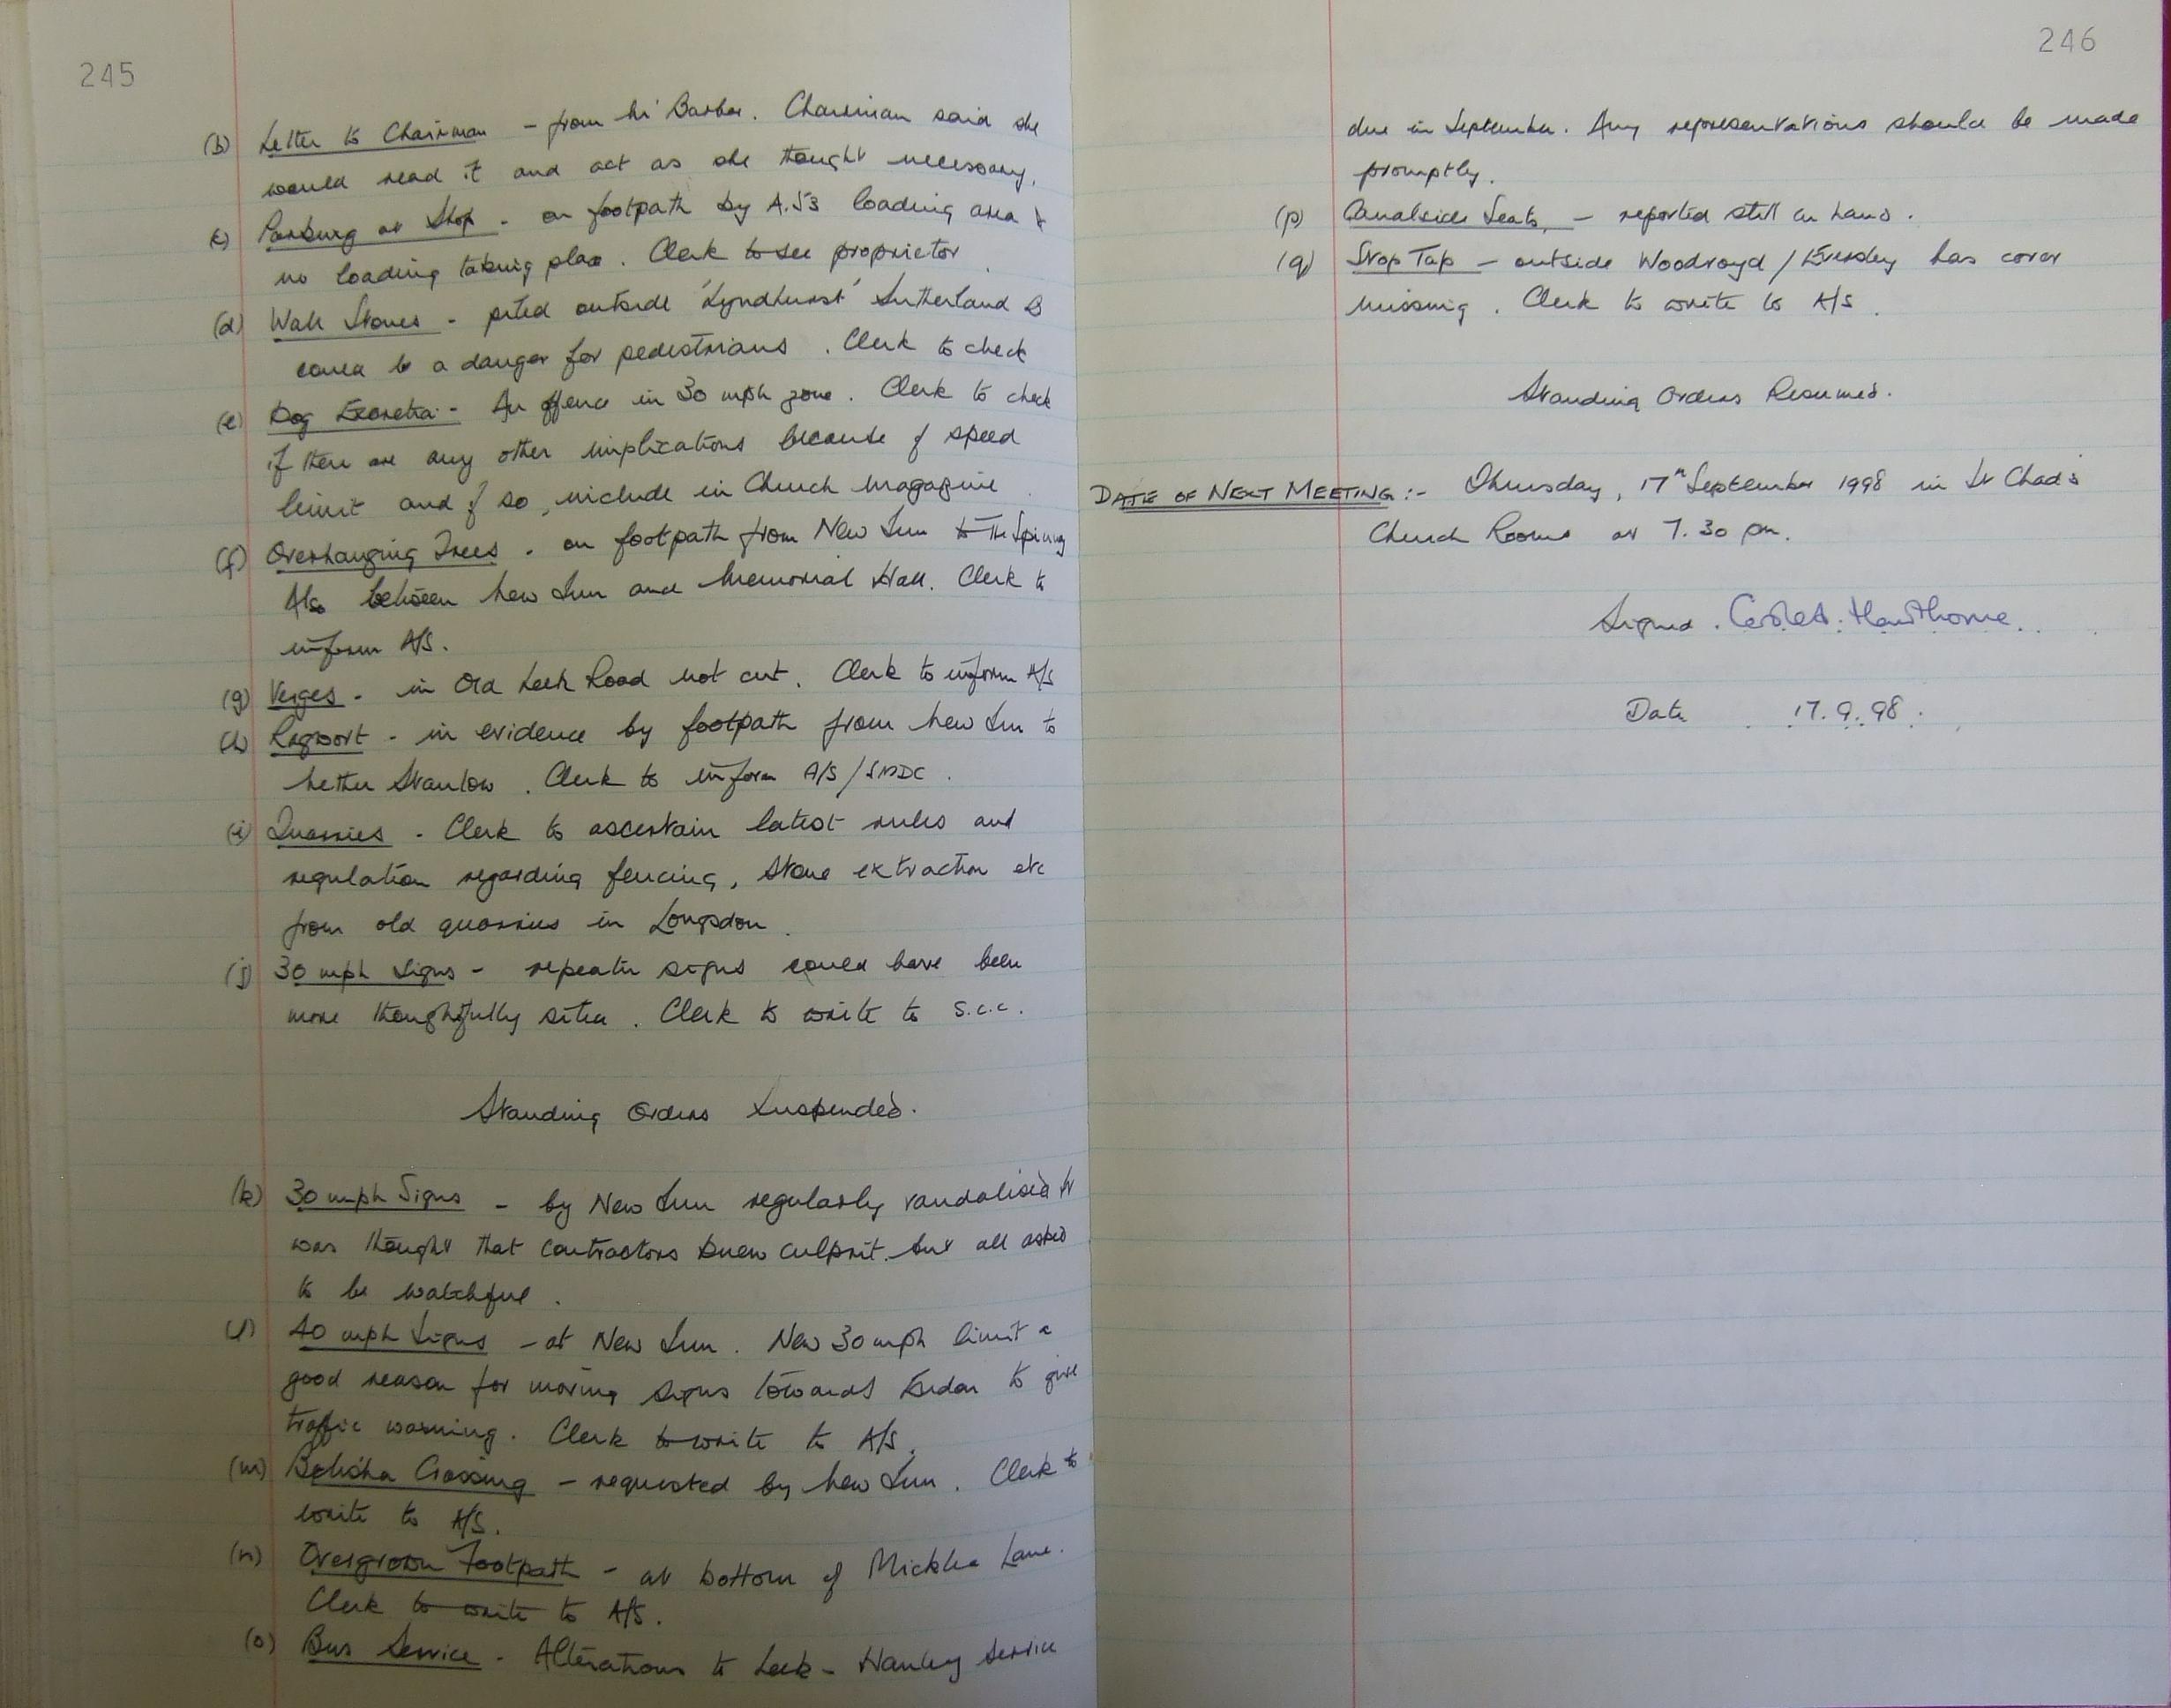 245
(b) Letter to Chairman - from Mr Barber. Chairman said she
would read it and act as she thought necessary.
(c) Parking at Shop - on footpath by A.53 loading area &
no loading taking place. Clerk to see proprietor.
(d) Wall Stones - piled outside 'Lyndhurst' Sutherland
could be a danger for pedestrians. Clerk to check
(e) Dog Excreta - An offence in 30 mph zone. Clerk to check
if there are any other implications because of speed
limit and if so, include in Church Magazine.
(f) Overhanging Trees - on footpath from New Inn to The Spinney
Also between New Inn and Memorial Hall. Clerk to
inform A/S.
(g) Verges - in Old Leek Road not cut. Clerk to inform A/S
(h) Ragwort - in evidence by footpath from New Inn to
Nether Stanlow. Clerk to inform A/S / SMDC.
(i) Quarries - Clerk to ascertain latest rules and
regulation regarding fencing, stone extraction etc
from old quarries in Longsdon.
(j) 30 mph Signs - repeater signs could have been
more thoughtfully sited. Clerk to write to S.C.C.
Standing Orders Suspended.
(k) 30 mph Signs - by New Inn regularly vandalised It
was thought that contractors knew culprit but all asked
to be watchful.
(l) 40 mph Signs - at New Inn. New 30 mph limit a
good reason for moving signs towards Endon to give
traffic warning. Clerk to write to A/S.
(m) Belisha Crossing - requested by New Inn. Clerk to
write to A/S.
(n) Overgrown Footpath - at bottom of Micklea Lane.
Clerk to write to A/S.
(o) Bus Service - Alterations to Leek - Hanley Service
246
due in September. Any representations should be made
promptly.
(p) Canalside Seats, - reported still in hand.
(q) Stop Tap - outside Woodroyd / Eversley has cover
missing. Clerk to write to A/S.
Standing Orders Resumed.
DATE OF NEXT MEETING:- Thursday, 17th September 1998 in St Chad's
Church Rooms at 7.30 pm.
Signed. Hawthorne.
Date 17.9.98.